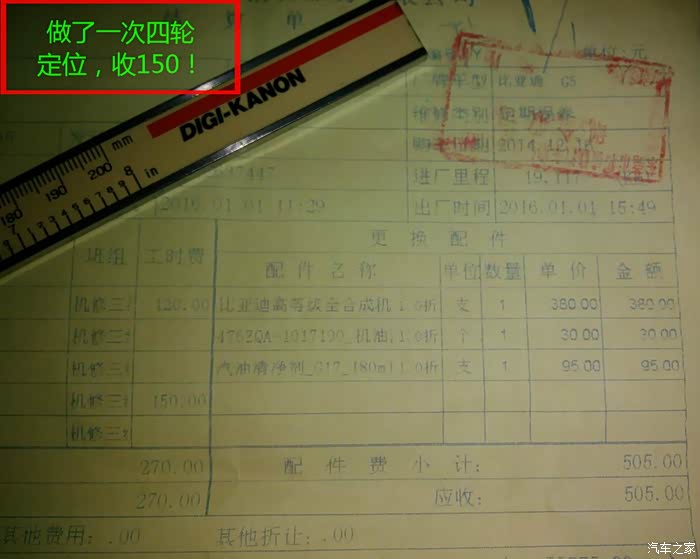 做了一次四轮
定位，收150！
结 算 单
单位:元
厂牌车型 比亚迪 G5
维修类别 定期保养
购车日期 2014.12.16
DIGI-KANON
mm
180 190 200
in
7 8
37447
进厂里程
2016.01.01 11:29 出厂时间 2016.01.01 15:49
更 换 配 件
班组 工时费 配 件 名 称 单位 数量 单 价 金 额
机修三 120.00 比亚迪高等级全合成机 1.0折 支 1 380.00 380.00
机修三 476ZQA-1017100_机油 1.0折 个 1 30.00 30.00
机修三 汽油清净剂_G17_180ml 1.0折 支 1 95.00 95.00
机修三 150.00
机修三
270.00 配 件 费 小 计: 505.00
270.00 应收: 505.00
其他费用: .00 其他折让: .00
汽车之家